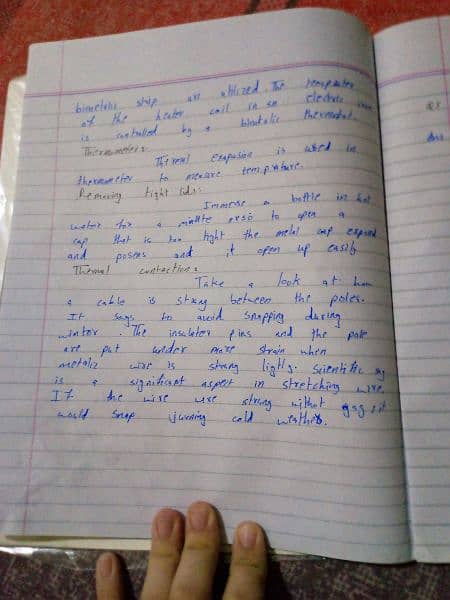 bimetalic strip are utilized. The temperature
of the heater coil in an electric iron
is controlled by a bimetalic thermostat.
Thermometer:
Thermal expasion is used in
thermometer to mesure temprature.
Removing tight lids:
Immerse a bottle in hot
water for a minitte orso to open a
cap that is too tight the metal cap expand
and and it open up easily
Thermal contraction:
Take a look at how
a cable is strung between the poles.
It sags to avoid snapping during
wintor. The insulater pins and the pole
are put under more strain when
metalic wire is strung lightly. Scientific sag
is a significant aspect in stretching wire.
If the wire are strung withot sag it
would snap cold weather.
Q8
Ans